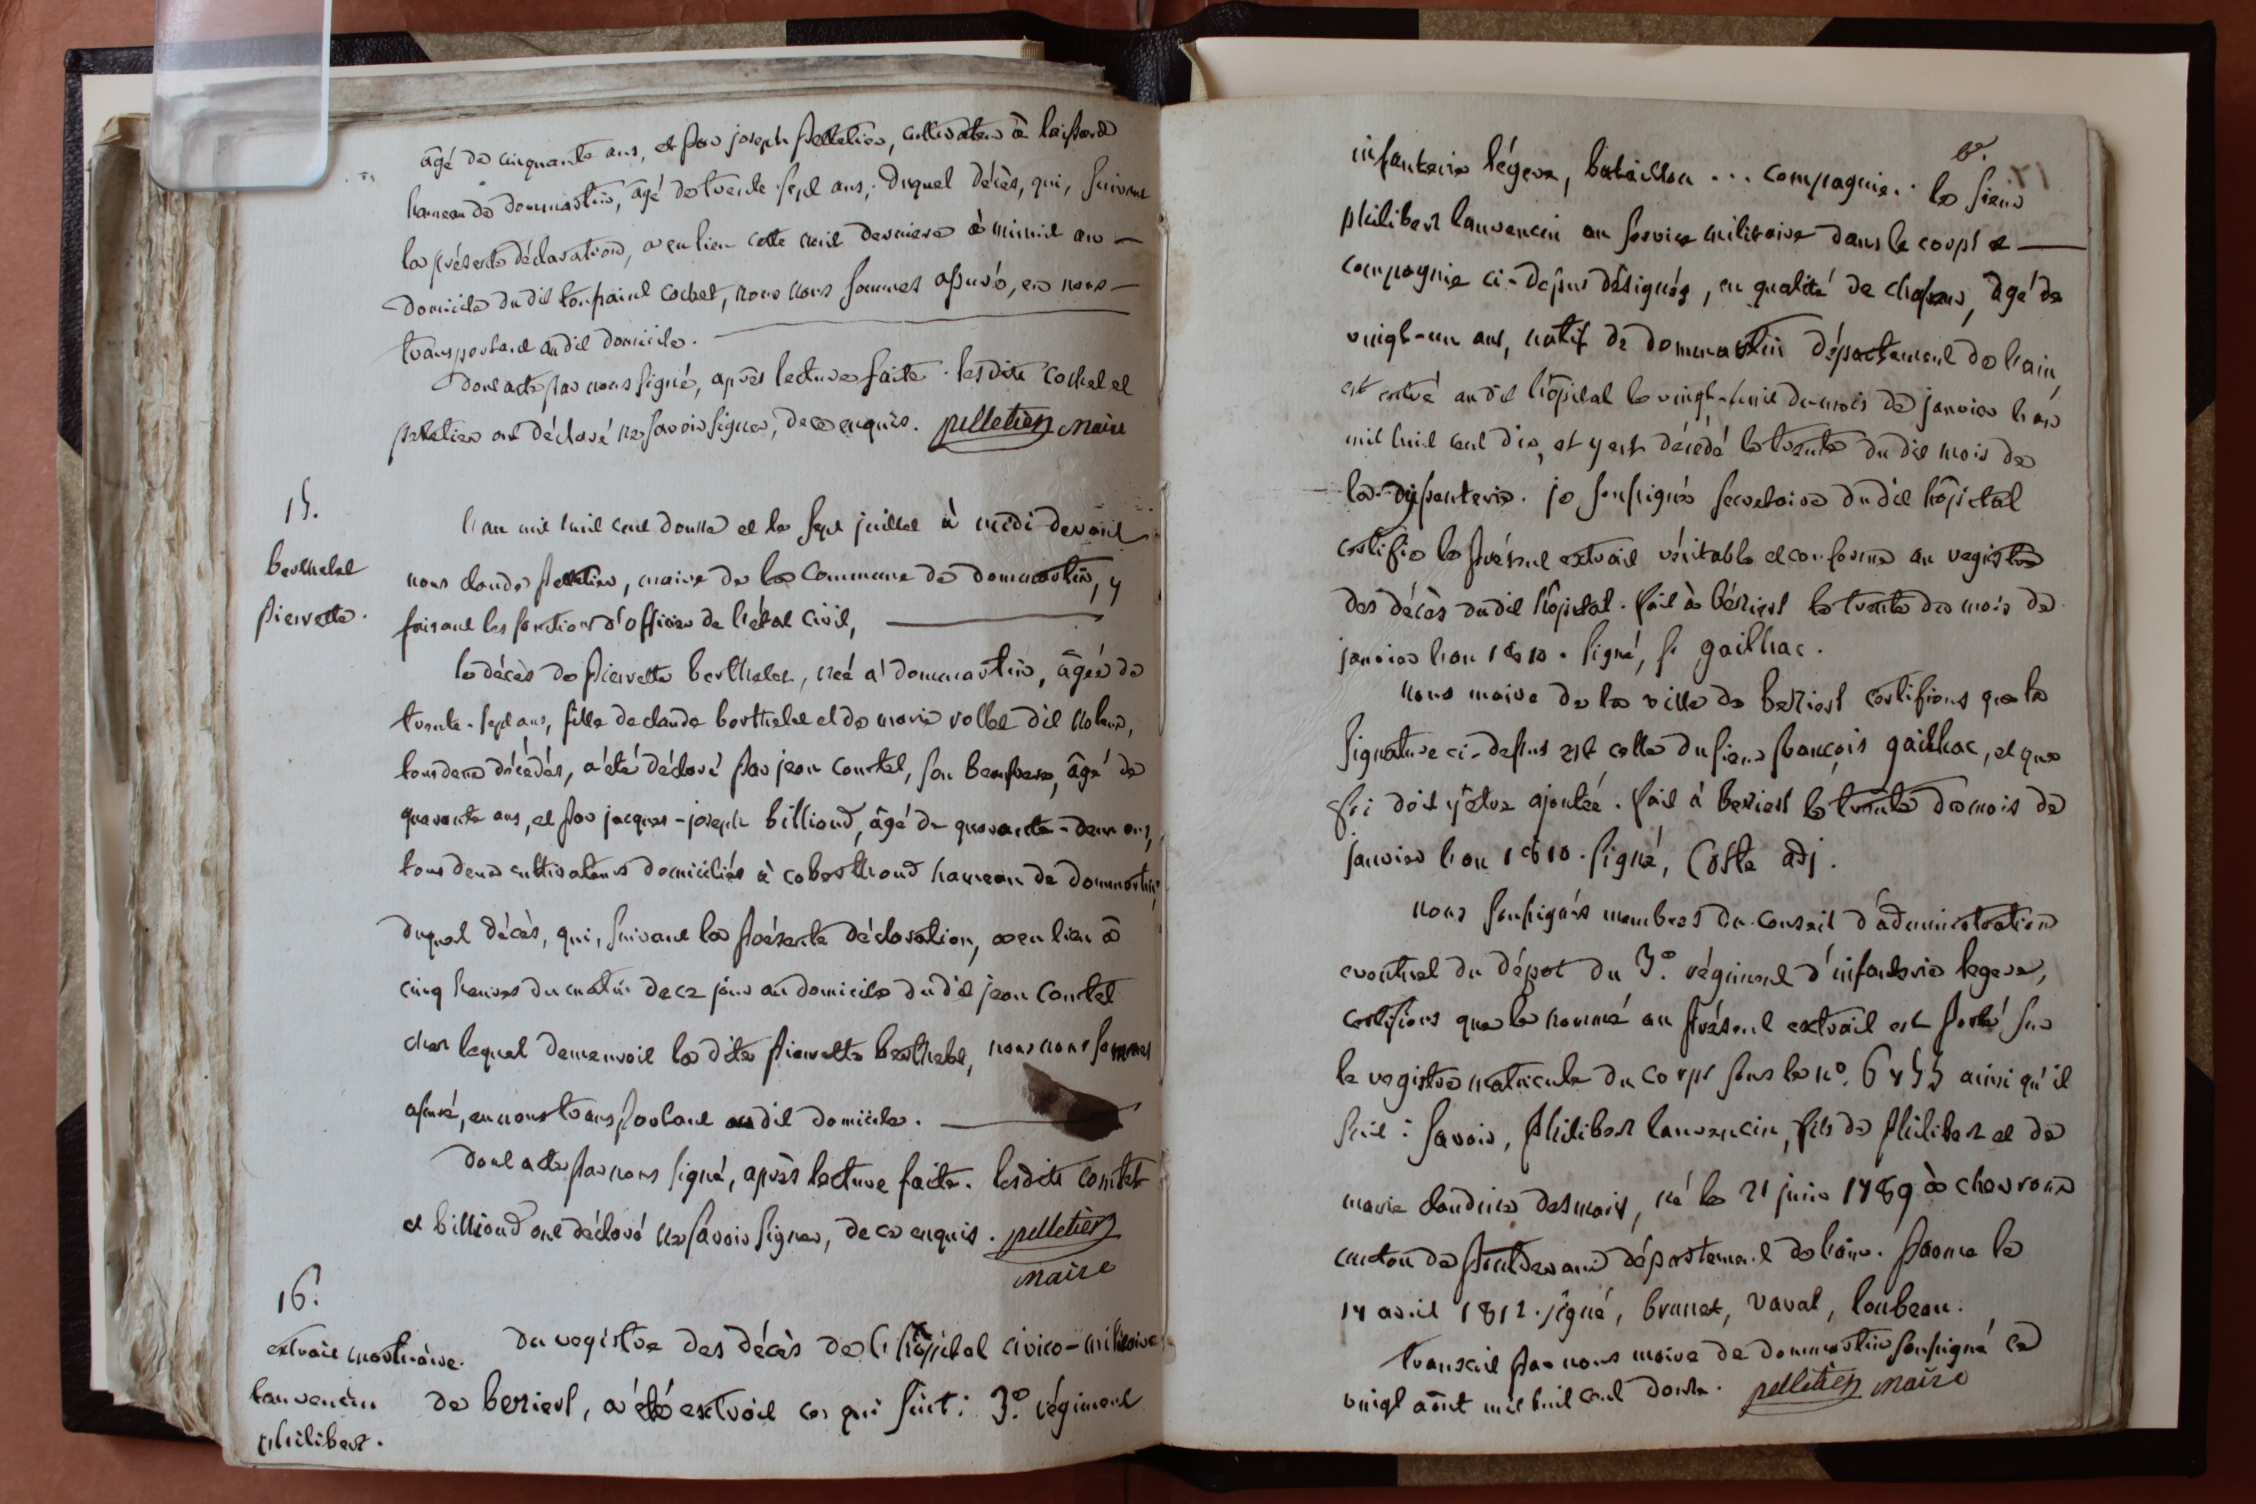 âgé de cinquante ans, et par joseph pelletier, cultivateur à
hameau de dommartin, âgé de trente-sept ans; duquel décès, qui, suivant
la présente déclaration, a eu lieu cette nuit derniere à minuit au
domicile du dit toussaint cochet, nous nous sommes assuré, en nous
transportant au dit domicile.
Dont acte par nous signé, après lecture faite. lesdits cochet et
pelletier ont déclaré ne savoir signer, de ce enquis. pelletier maire
15.
berthelet
pierrette.
l'an mil huit cent douze et le sept juillet à midi devant
nous claude pelletier, maire de la commune de dommartin, y
faisant les fonctions d'officier de l'état civil,
le décès de pierrette berthelet, née à dommartin, âgée de
trente-sept ans, fille de claude berthelet et de marie vollet dit
tous deux décédés, a été déclaré par jean comtet, son beaufrere, âgé de
quarante ans, et par jacques-joseph billioud, âgé de quarante-deux ans,
tous deux cultivateurs domiciliés à coberthoud hameau de dommartin,
duquel décès, qui, suivant la présente déclaration, a eu lieu à
cinq heures du matin de ce jour au domicile du dit jean comtet
chez lequel demeuroit la dite pierrette berthelet, nous nous sommes
assuré, en nous transportant au dit domicile.
Dont acte par nous signé, après lecture faite. lesdits comtet
et billioud ont déclaré ne savoir signer, de ce enquis. pelletier
maire
16.
extrait mortuaire.
lauvencin
philibert.
du registre des décès de l'hôpital civico-militaire
de beziers, a été extrait ce qui suit: 3.e régiment
infanterie légere, bataillon ... compagnie.. le sieur
philibert lauvencin au service militaire dans le corps et
compagnie ci-dessus désignés, en qualité de chasseur, âgé de
vingt-un ans, natif de dommartin département de l'ain,
est entré au dit hôpital le vingt-huit du mois de janvier l'an
mil huit cent dix, et y est décédé le trente du dit mois de
la dyssenterie. je soussigné secretaire du dit hôpital
certifie le présent extrait véritable et conforme au registre
des décès du dit hôpital. fait à béziers le trente du mois de
janvier l'an 1810. signé, f. gailhac.
nous maire de la ville de beziers certifions que la
signature ci-dessus est celle du sieur françois gailhac, et que
foi doit y être ajoutée. fait à beziers le trente du mois de
janvier l'an 1810. signé, Coste adj.
nous soussignés membres du conseil d'administration
eventuel du dépot du 3.e régiment d'infanterie legere,
certifions que le nommé au présent extrait est porté sur
le registre matricule du corps sous le n.o 6455 ainsi qu'il
suit: savoir, philibert lauvencin, fils de philibert et de
marie claudine desmaris, né le 21 juin 1789 à chevroux
canton de pontdevaux département de l'ain. parme le
14 avril 1812. signé, brunet, vaval, loubeau.
transcrit par nous maire de dommartin soussigné ce
vingt août mil huit cent douze. pelletier maire